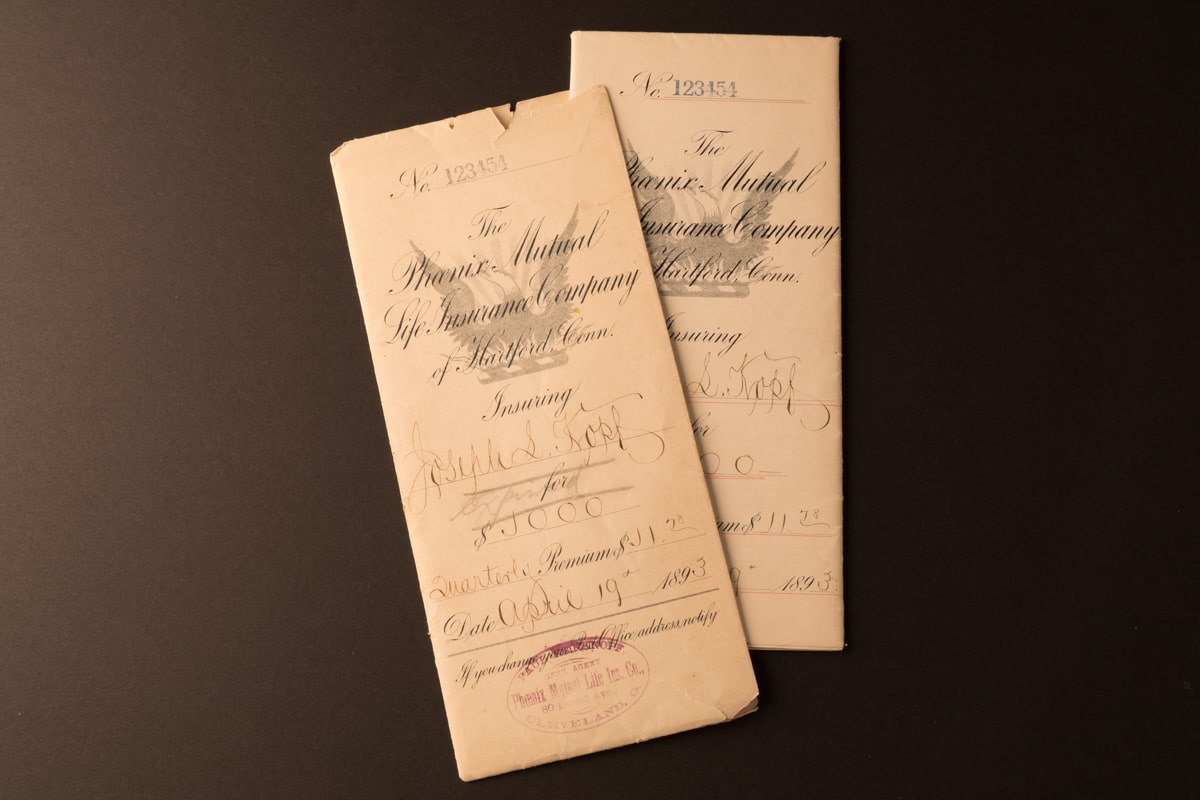 No. 123454
The
Phœnix Mutual
Life Insurance Company
of Hartford, Conn.
Insuring
Joseph L. Kopf
for
$ 1000
Quarterly Premium $ 11.78
Date April 19 1893
If you change your Post Office address, notify
GENL. AGENT
Phoenix Mutual Life Ins. Co.,
80 AVE.
CLEVELAND, O
No. 123454
The
Phœnix Mutual
Insurance Company
Hartford, Conn.
Insuring
L. Kopf
for
00
um $ 11 78
9 1893